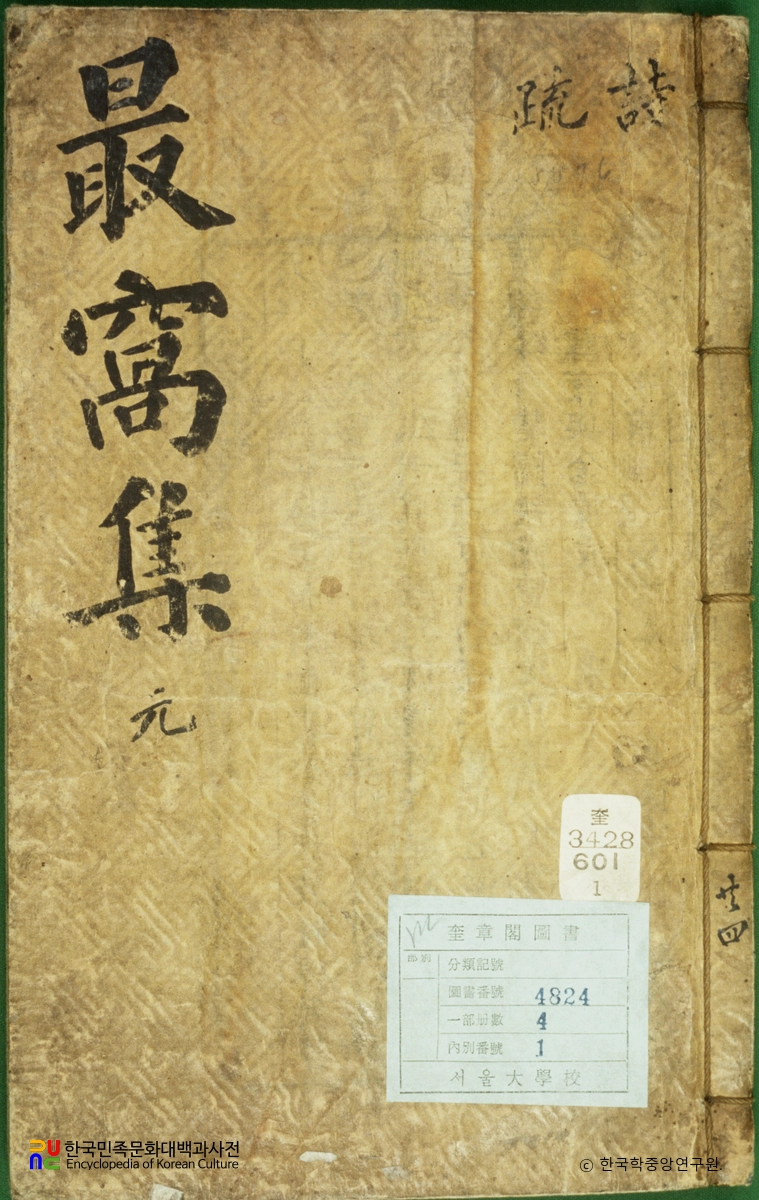 詩
疏
最窩集
元
共四
奎
3428
601
1
奎章閣圖書
部別
分類記號
圖書番號 4824
一部册數 4
內別番號 1
서울大學校
한국민족문화대백과사전
Encyclopedia of Korean Culture
© 한국학중앙연구원